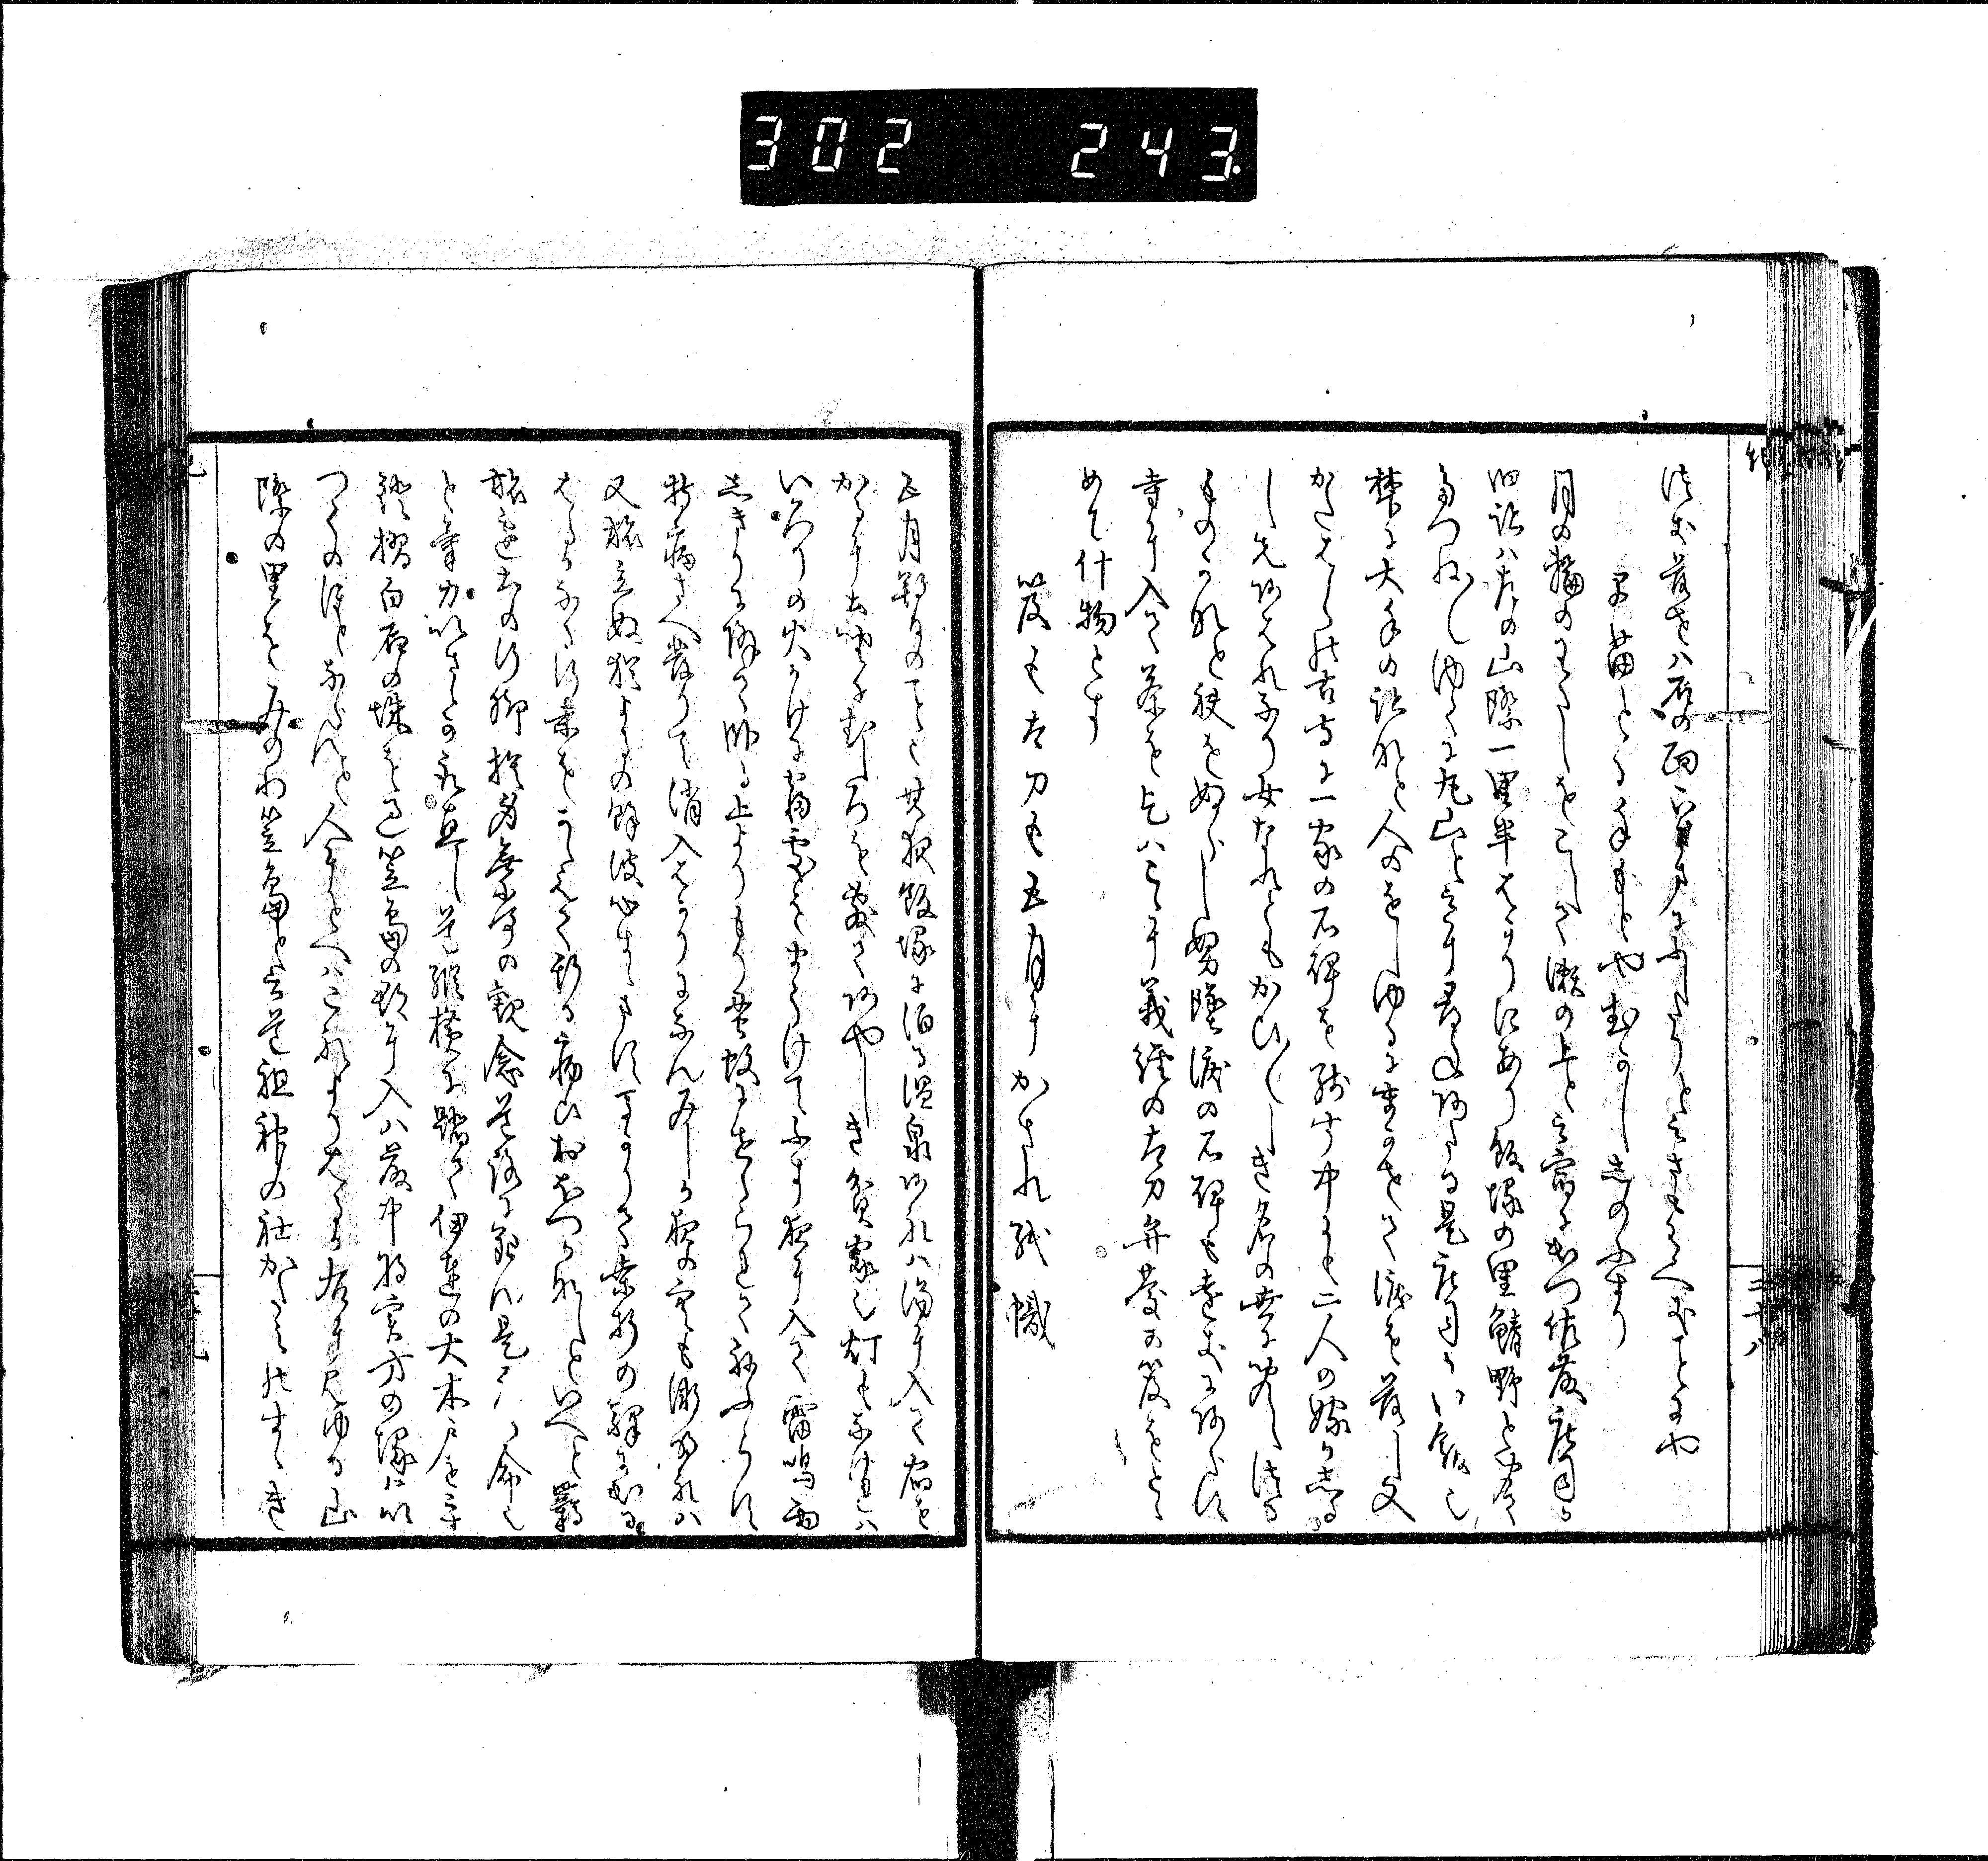 つき落せハ石の面下さまにふしたりと云さもあるへきことにや
早苗とる手もとや昔しのふすり
月の輪のわたしをこして瀬の上と云宿に出つ佐藤庄司か
旧跡ハ左の山際一里半はかりにあり飯塚の里鯖野と聞て
尋ね〳〵ゆくに丸山と云に尋あたる是庄司か旧館也
梺に大手の跡なと人のをしゆるに任せて涙を落し又
かたはらの古寺に一家の石碑を残す中にも二人の嫁かしる
し先あはれなり女なれともかひ〳〵しき名の世に聞つる
ものかなと袂をぬらしぬ堕涙の石碑も遠きにあらす
寺に入て茶を乞ハこゝに義経の太刀弁慶か笈をとゝ
めて什物とす
笈も太刀も五月にかされ紙幟
五月朔日のこと也其夜飯塚に泊る温泉あれハ湯に入て宿を
かるに土坐にむしろを敷てあやしき貧家也灯もなけれハ
いろりの火かけに寝所をまうけてふす夜に入て雷鳴雨
しきりに降て臥る上よりもり蚤蚊にせゝられて眠らす
持病さへ発りて消入はかりになんみしか夜の空も漸明れハ
又旅立ぬ猶よるの余波心すゝます馬かりて桑折の駅に出る
はるかなる行末をかゝえて斯る病ひおほつかなしといへと羇
旅辺土の行脚捨身無常の観念道路に死ん是天の命也
と気力いさゝか取直し道縦横に踏て伊達の大木戸を越す
鐙摺白石の城を過笠島の郡に入ハ藤中将実方の塚ハいつ
つくのほとならんと人にとへハこれよりはるか右に見ゆる山
際の里をみのわ笠島と云道祖神の社かたみのすゝき
三十八